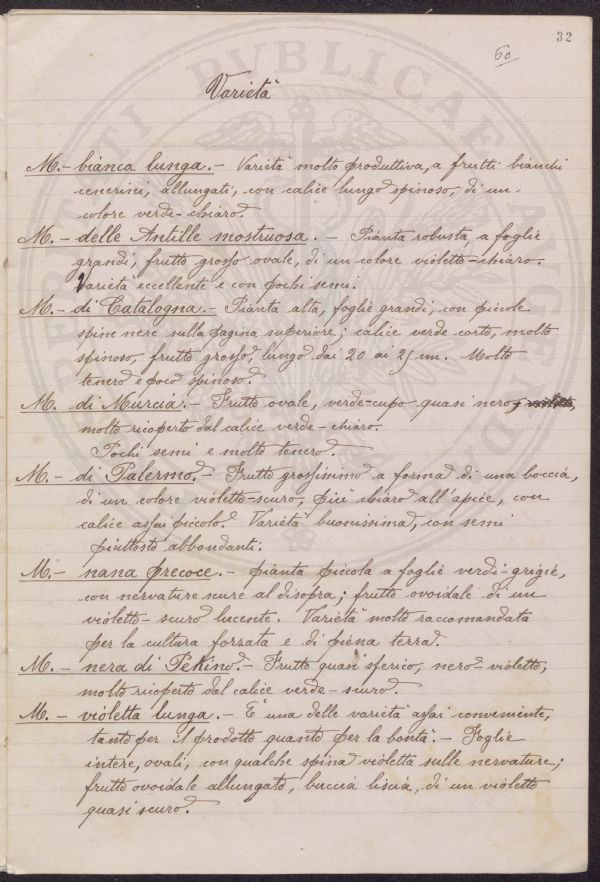 32
60
Varietà
M.- bianca lunga.- Varietà molto produttiva, a frutti bianchi
cenerini, allungati, con calice lungo spinoso, di un
colore verde-chiaro.
M.- delle Antille mostruosa.- Pianta robusta, a foglie
grandi, frutto grosso ovale, di un colore violetto-chiaro.
Varietà eccellente e con pochi semi.
M.- di Catalogna.- Pianta alta, foglie grandi, con piccole
spine nere sulla pagina superiore; calice verde corto, molto
spinoso, frutto grosso, lungo dai 20 ai 25 cm. Molto
tenero e poco spinoso.
M. di Murcia.- Frutto ovale, verde-cupo quasi nero,
molto ricoperto dal calice verde-chiaro.
Pochi semi e molto tenero.
M.- di Palermo.- Frutto grossissimo a forma di una boccia,
di un colore violetto-scuro, più chiaro all'apice, con
calice assai piccolo. Varietà buonissima, con semi
piuttosto abbondanti.
M.- nana precoce.- Pianta piccola a foglie verdi-grigie,
con nervature scure al disopra; frutto ovoidale di un
violetto-scuro lucente. Varietà molto raccomandata
per la cultura forzata e di piena terra.
M.- nera di Pekino.- Frutto quasi sferico, nero-violetto,
molto ricoperto dal calice verde-scuro.
M.- violetta lunga.- È una delle varietà assai conveniente,
tanto per il prodotto quanto per la bontà.- Foglie
intere, ovali, con qualche spina violetta sulle nervature;
frutto ovoidale allungato, buccia liscia, di un violetto
quasi scuro.